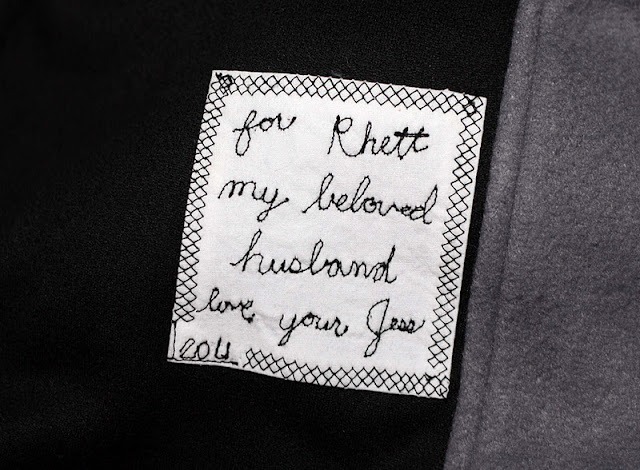 for Rhett
my beloved
husband
love your Jess
2011